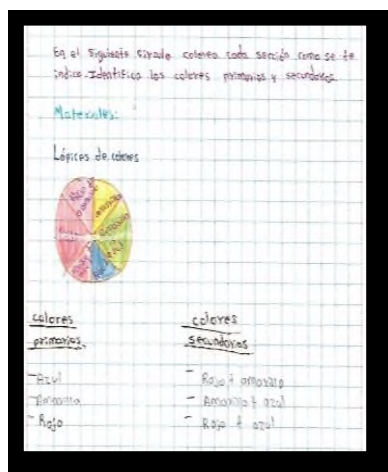 En el siguiente circulo colorea cada sección como se te
indica. Identifica los colores primarios y secundarios.
Materiales:
Lápices de colores
Rojo + amarillo
amarillo
Amarillo + azul
azul
Rojo
colores
primarios
colores
secundarios
- Azul
- Amarillo
- Rojo
- Rojo + amarillo
- Amarillo + azul
- Rojo + azul